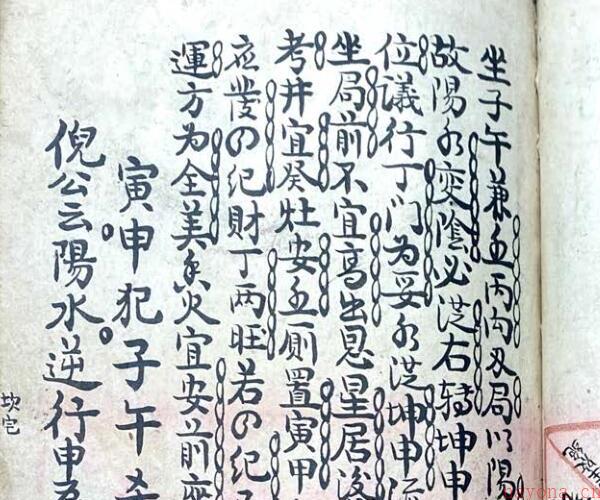 坐子午兼壬丙内又局以陽
故陽水变陰必從右轉坤申
位議行丁门为妥水從坤申
坐局前不宜高出恳星居後
考井宜癸灶安壬厠置寅甲
宜發四纪財丁两旺若四纪
運方为全美香火宜安前座
寅申犯子午
倪公云陽水逆行申
坎宅
buyona.cn